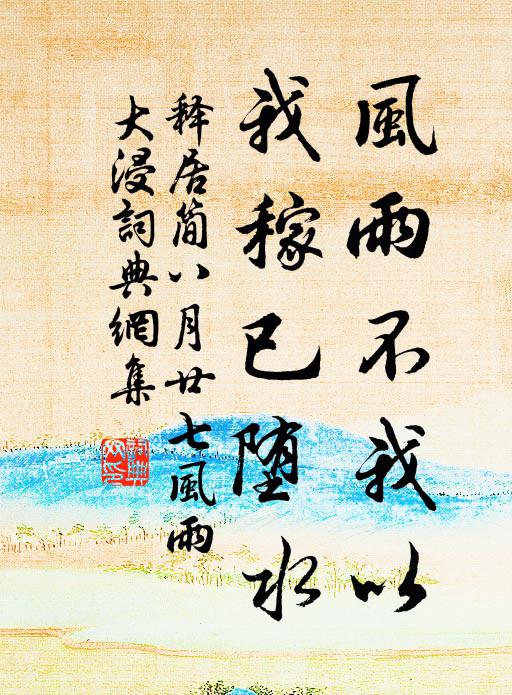 風雨不我以
我稼已堕水
释居简八月廿七風雨
大浸詞典網集